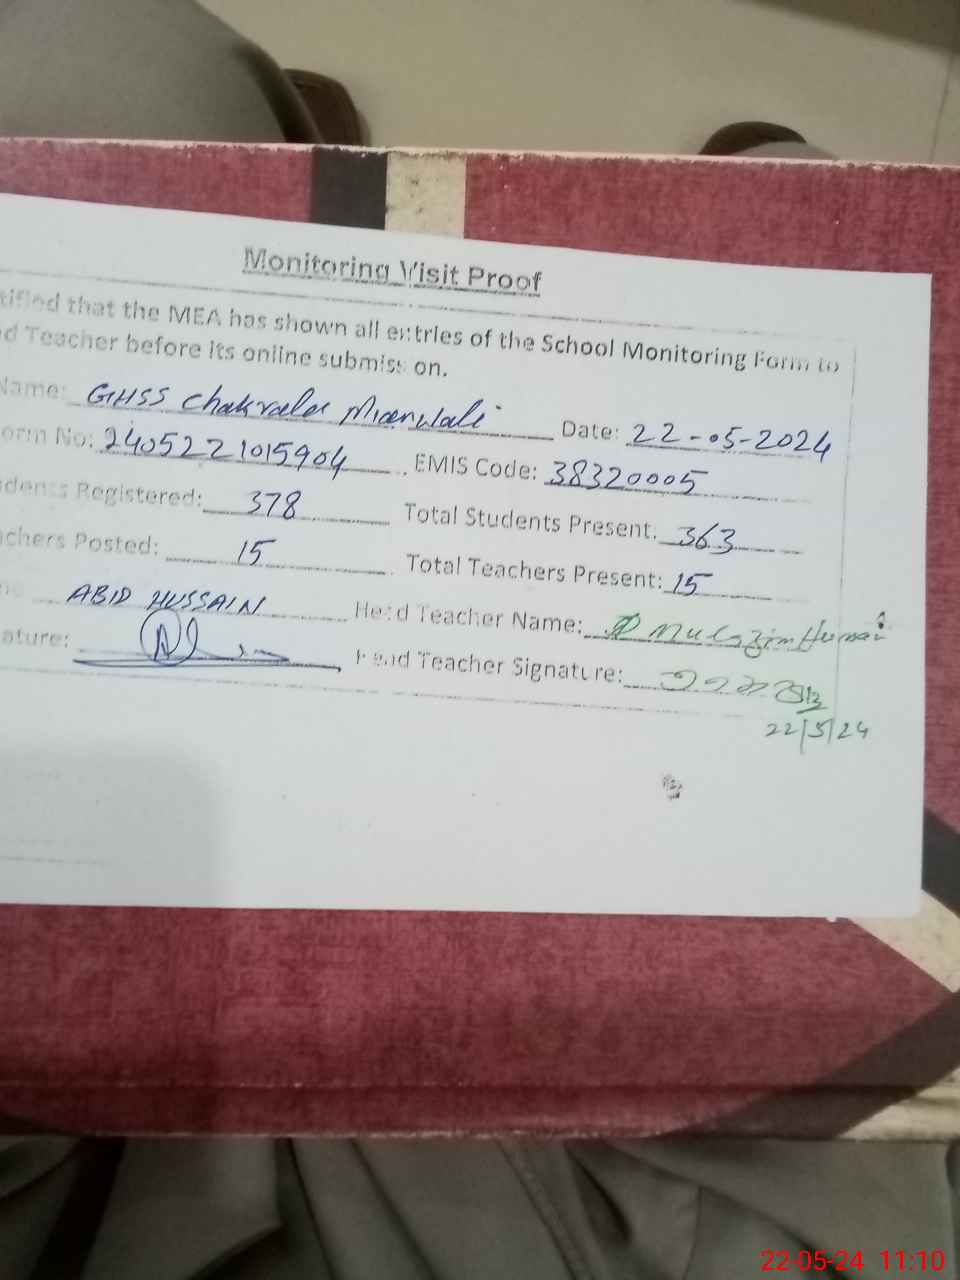 Monitoring Visit Proof
tified that the MEA has shown all entries of the School Monitoring Form to
d Teacher before its online submission.
Name: GHSS Chakrala Mianwali Date: 22-05-2024
orm No: 2405221015904 EMIS Code: 38320005
dents Registered: 378 Total Students Present: 363
achers Posted: 15 Total Teachers Present: 15
ABID HUSSAIN Head Teacher Name:
ature: Head Teacher Signature:
22/5/24
22-05-24 11:10